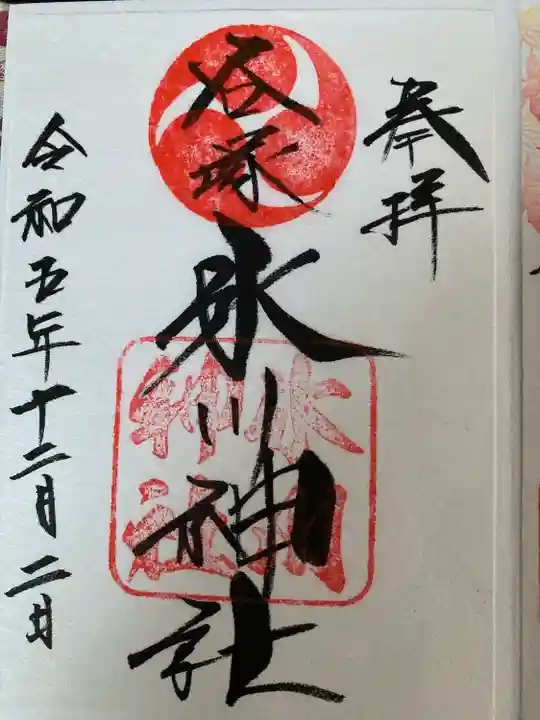 奉拝
谷塚氷川神社
氷川神社
令和五年十二月二日